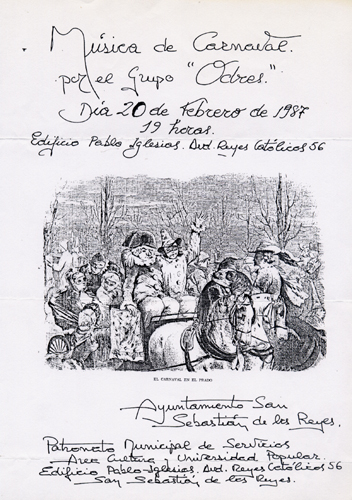 Música de Carnaval.
por el Grupo "Odres."
Día 20 de Febrero de 1987
19 horas.
Edificio Pablo Iglesias. Avd. Reyes Católicos 56
EL CARNAVAL EN EL PRADO
Ayuntamiento San
Sebastián de los Reyes.
Patronato Municipal de Servicios
Area Cultura y Universidad Popular.
Edificio Pablo-Iglesias. Avd. Reyes Católicos 56
San Sebastián de los Reyes.